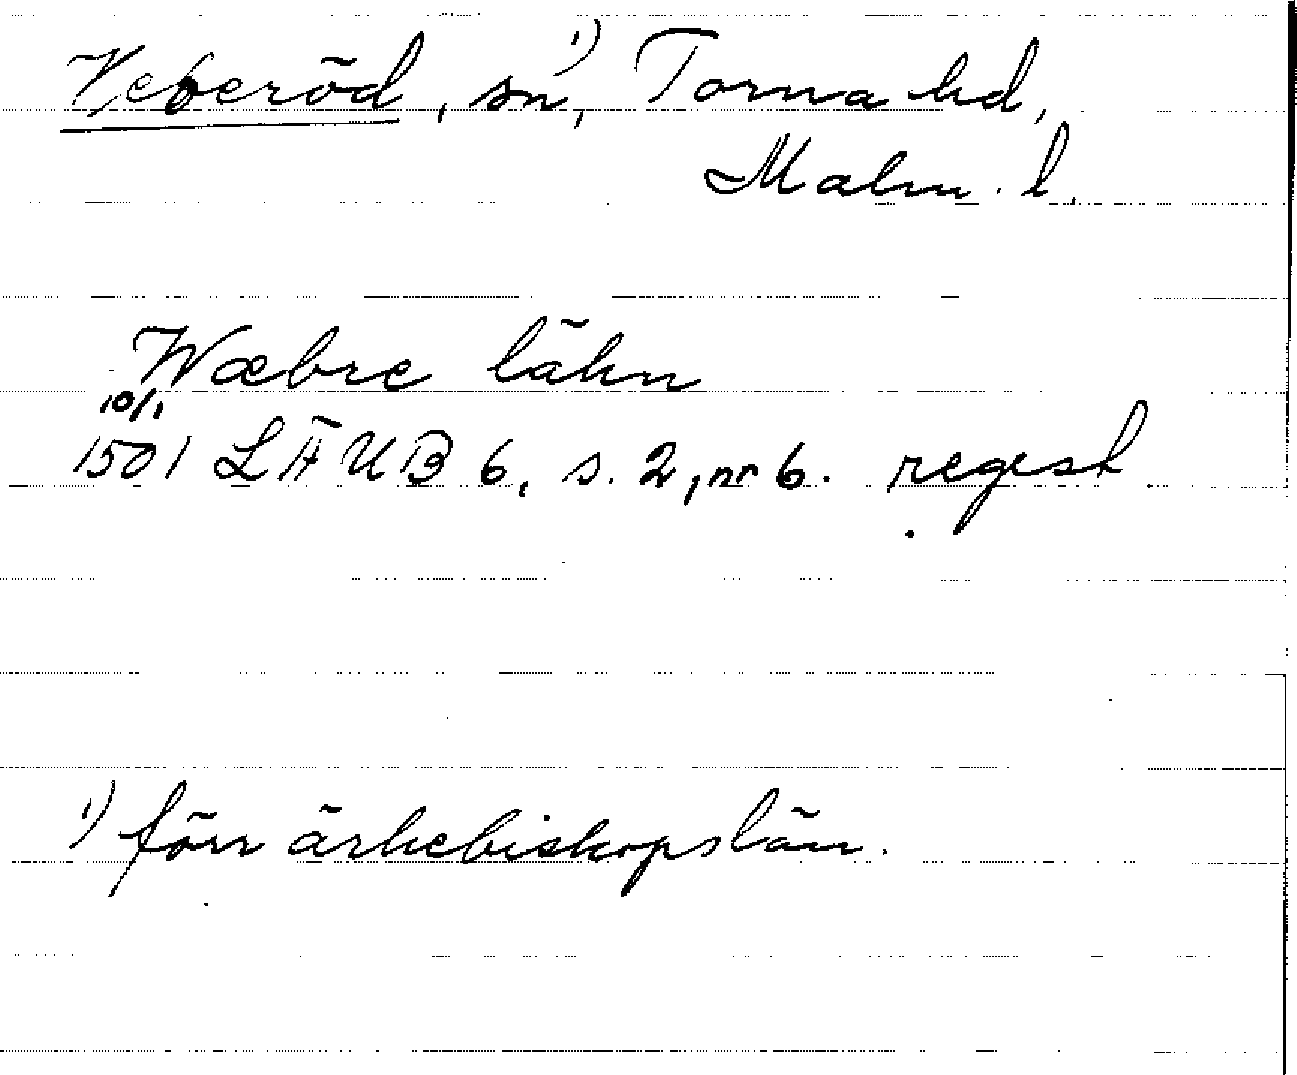 Veberöd, sn, ¹) Torna hd,
Malm. l.
Wæbre lähn
10/1
1501 LÄUB 6, s. 2, nr 6. regest
¹) förr ärkebiskopslän.